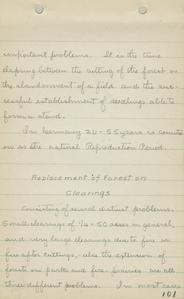 important problems. It is the time
elapsing between the cutting of the forest or
the abandonment of a field and the suc-
cessful establishment of seedlings able to
form a stand.
In Germany 20-55 years is counted
on as the natural Reproduction Period.
Replacement of Forest on
Clearings
Consisting of several distinct problems.
Small clearings of 1/4 - 50 acres in general,
and very large clearings due to fire or
fire after cuttings, - also the extension of
forests on parks and fire-prairies are all
three different problems. In most cases
101